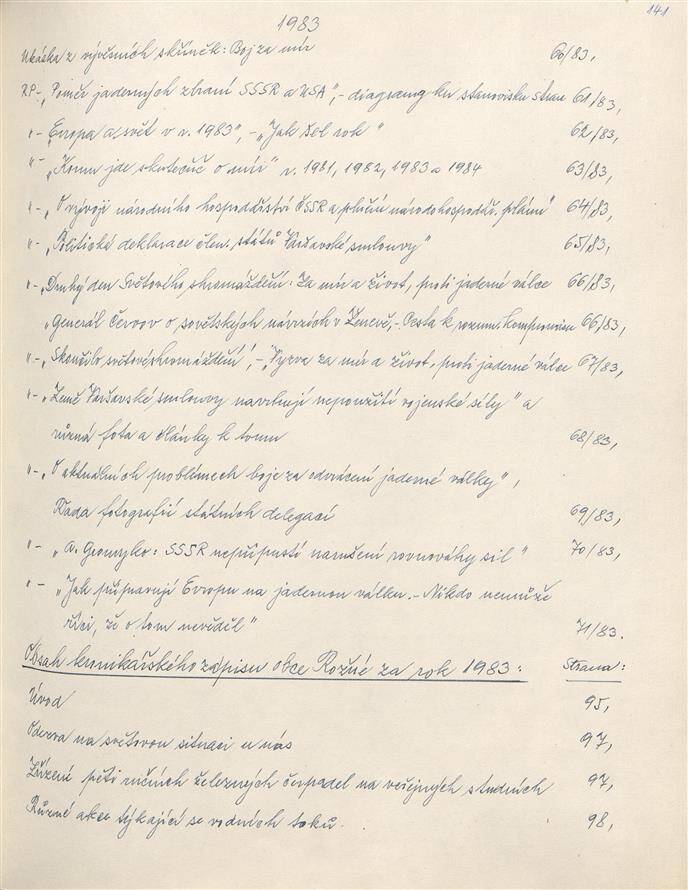 141
1983
Ukázka z vývěsních skříněk: Boj za mír 60/83,
RP-„Poměr jaderných zbraní SSSR a USA",- diagramy ku stanovisku stran 61/83,
"- „Evropa a svět v r. 1983",-„Jak šel rok" 62/83,
"- „Komu jde skutečně o mír" r. 1981, 1982, 1983 a 1984 63/83,
"-„O vývoji národního hospodářství ČSSR a plnění národohospodář. plánu" 64/83,
"-„Politická deklarace člen. států Varšavské smlouvy" 65/83,
"-„Druhý den Světového shromáždění: Za mír a život, proti jaderné válce 66/83,
„Generál Červov o sovětských návrzích v Ženevě,- Cesta k rozum. kompromisu 66/83,
"-„Skončilo světové shromáždění",-„Výzva za mír a život, proti jaderné válce 67/83,
"-„Země Varšavské smlouvy navrhují nepoužití vojenské síly" a
různá fota a články k tomu 68/83,
"-„O aktuálních problémech boje za odvrácení jaderné války",
Řada fotografií státních delegací 69/83,
"- „A. Gromyko: SSSR nepřipustí narušení rovnováhy sil" 70/83,
"- „Jak připravují Evropu na jadernou válku.- Nikdo nemůže
říci, že o tom nevěděl" 71/83.
Obsah kronikářského zápisu obce Rožné za rok 1983: Strana:
Úvod 95,
Odezva na světovou situaci u nás 97,
Zřízení pěti ručních železných čerpadel na veřejných studních 97,
Různé akce týkající se vodních toků. 98,